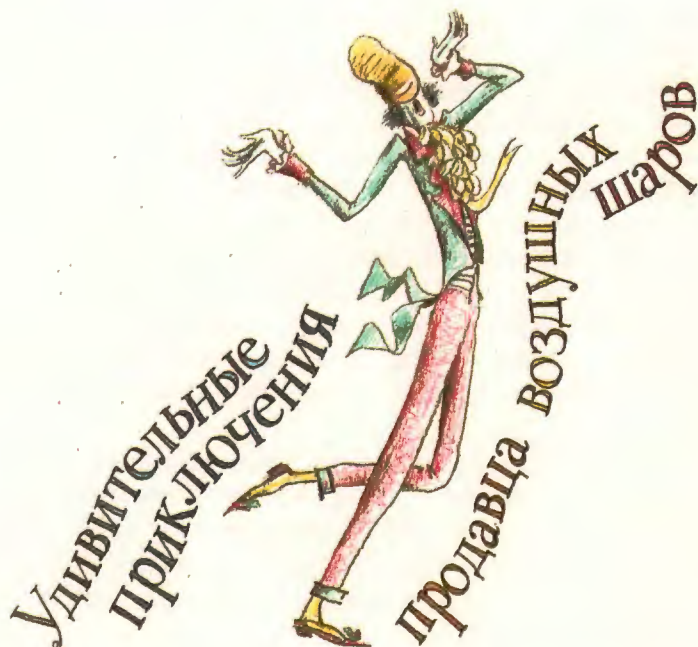 Удивительные
приключения
продавца воздушных
шаров